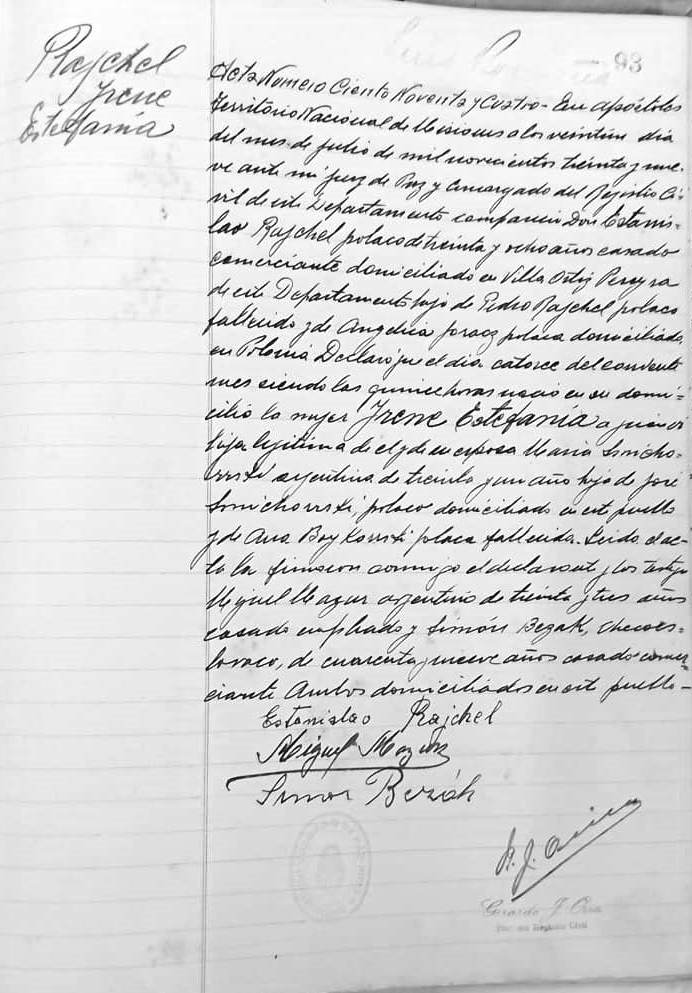 Rajchel
Irene
Estefanía
93
Acta Numero Ciento Noventa y Cuatro - En apóstoles
Territorio Nacional de Misiones a los veintiun dia
del mes de julio de mil novecientos treinta y nue-
ve ante mi juez de Paz y encargado del Registro Ci-
vil de este Departamento compareció Don Estanis-
lao Rajchel polaco de treinta y ocho años casado
comerciante domiciliado en Villa Ortiz Pereyra
de este Departamento hijo de Pedro Rajchel polaco
fallecido y de Angelica polaca domiciliada
en Polonia Declaró que el dia catorce del corriente
mes siendo las quince horas nació en su domi-
cilio la mujer Irene Estefanía a quien vi
hija legitima de el y de su esposa Maria Smicho-
wski argentina de treinta y un año hija de José
Smichowski, polaco domiciliado en este pueblo
y de Ana Boykowski polaca fallecida. Leida el ac-
ta la firmaron conmigo el declarante y los testigos
Miguel Mazur argentino de treinta y tres años
casado empleado y Simón Bezak, checoes-
lovaco, de cuarenta y nueve años casado comer-
ciante Ambos domiciliados en este pueblo -
Estanislao Rajchel
Miguel Mazur
Simon Bezák
Gerardo J.
Registro Civil